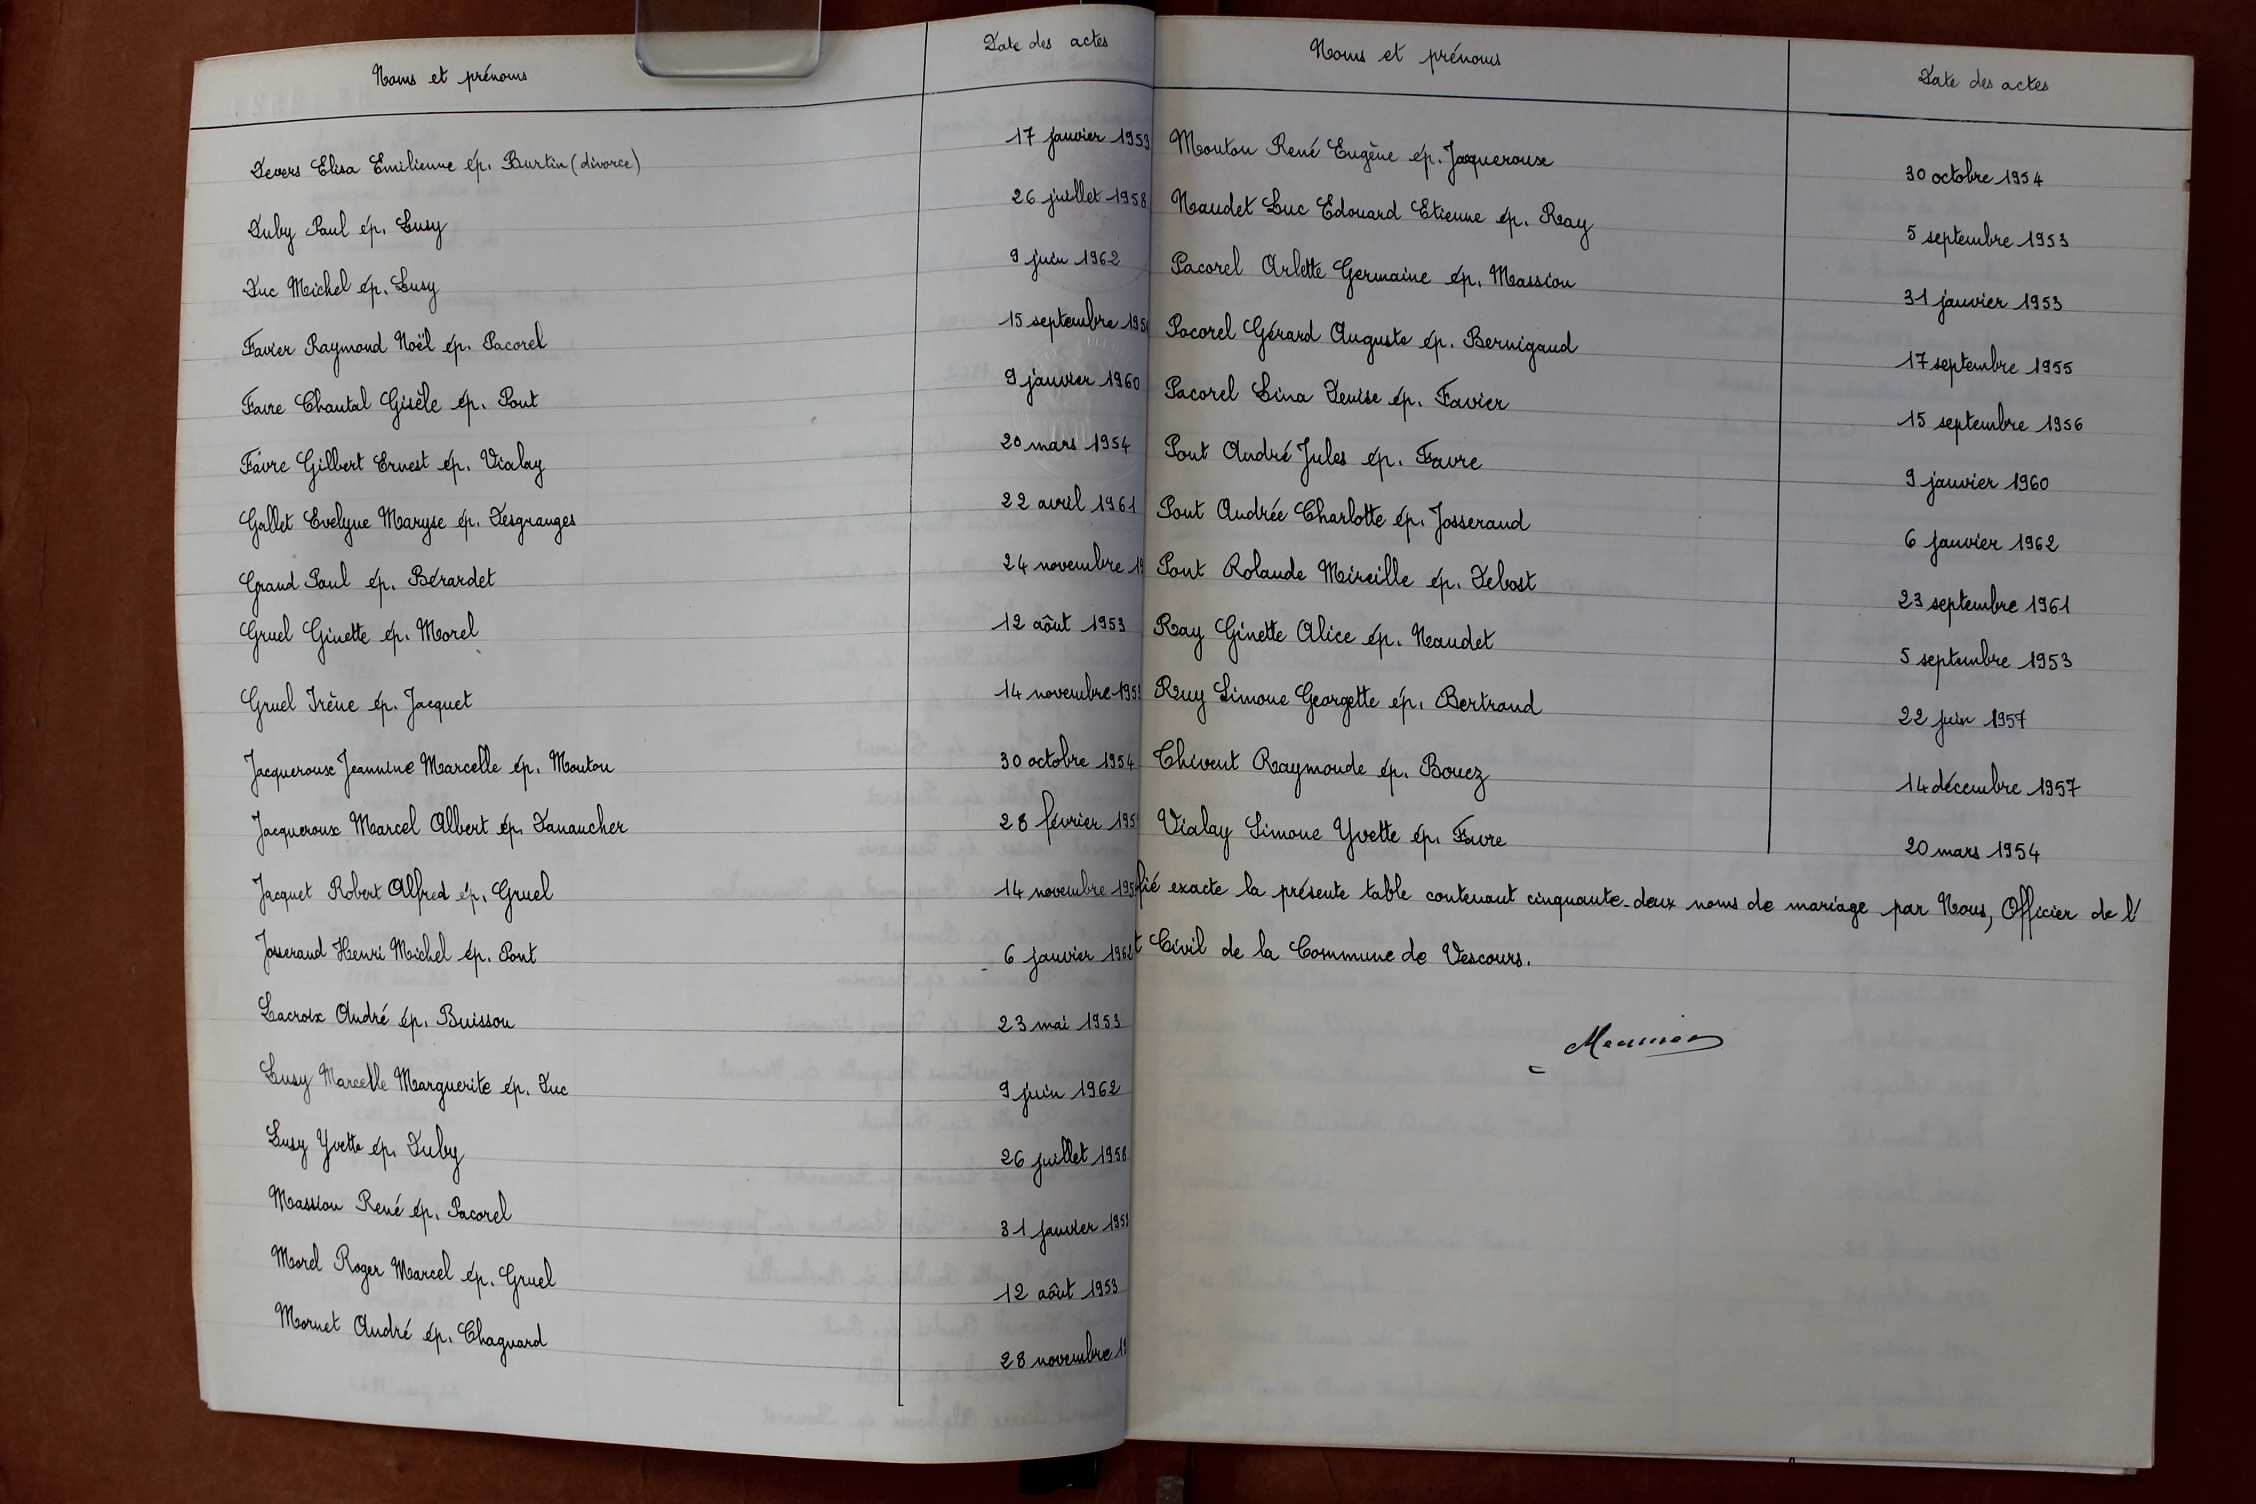 Noms et prénoms Date des actes
Devers Elisa Emilienne ép. Burtin (divorce) 17 janvier 1953
Duby Paul ép. Lusy 26 juillet 1958
Duc Michel ép. Lusy 9 juin 1962
Favier Raymond Noël ép. Pacorel 15 septembre 195
Favre Chantal Gisèle ép. Pont 9 janvier 1960
Favre Gilbert Ernest ép. Vialay 20 mars 1954
Gallet Evelyne Maryse ép. Desgranges 22 avril 1961
Grand Paul ép. Bérardet 24 novembre 19
Gruel Ginette ép. Morel 12 aôut 1953
Gruel Irène ép. Jacquet 14 novembre 195
Jacqueroux Jeannine Marcelle ép. Mouton 30 octobre 1954
Jacqueroux Marcel Albert ép. Danancher 28 février 195
Jacquet Robert Alfred ép. Gruel 14 novembre 195
Josserand Henri Michel ép. Pont 6 janvier 1962
Lacroix André ép. Buisson 23 mai 1953
Lusy Marcelle Marguerite ép. Duc 9 juin 1962
Lusy Yvette ép. Duby 26 juillet 1958
Massion René ép. Pacorel 31 janvier 195
Morel Roger Marcel ép. Gruel 12 aôut 1953
Mornet André ép. Chagnard 28 novembre 19
Noms et prénoms Date des actes
Mouton René Eugène ép. Jacqueroux 30 octobre 1954
Naudet Luc Edouard Etienne ép. Ray 5 septembre 1953
Pacorel Arlette Germaine ép. Massion 31 janvier 1953
Pacorel Gérard Auguste ép. Bernigaud 17 septembre 1955
Pacorel Lina Denise ép. Favier 15 septembre 1956
Pont André Jules ép. Favre 9 janvier 1960
Pont Andrée Charlotte ép. Josserand 6 janvier 1962
Pont Rolande Mireille ép. Debost 23 septembre 1961
Ray Ginette Alice ép. Naudet 5 septembre 1953
Ruy Simone Georgette ép. Bertrand 22 juin 1957
Thivent Raymonde ép. Bouez 14 décembre 1957
Vialay Simone Yvette ép. Favre 20 mars 1954
fié exacte la présente table contenant cinquante-deux noms de mariage par Nous, Officier de l'
t Civil de la Commune de Vescours.